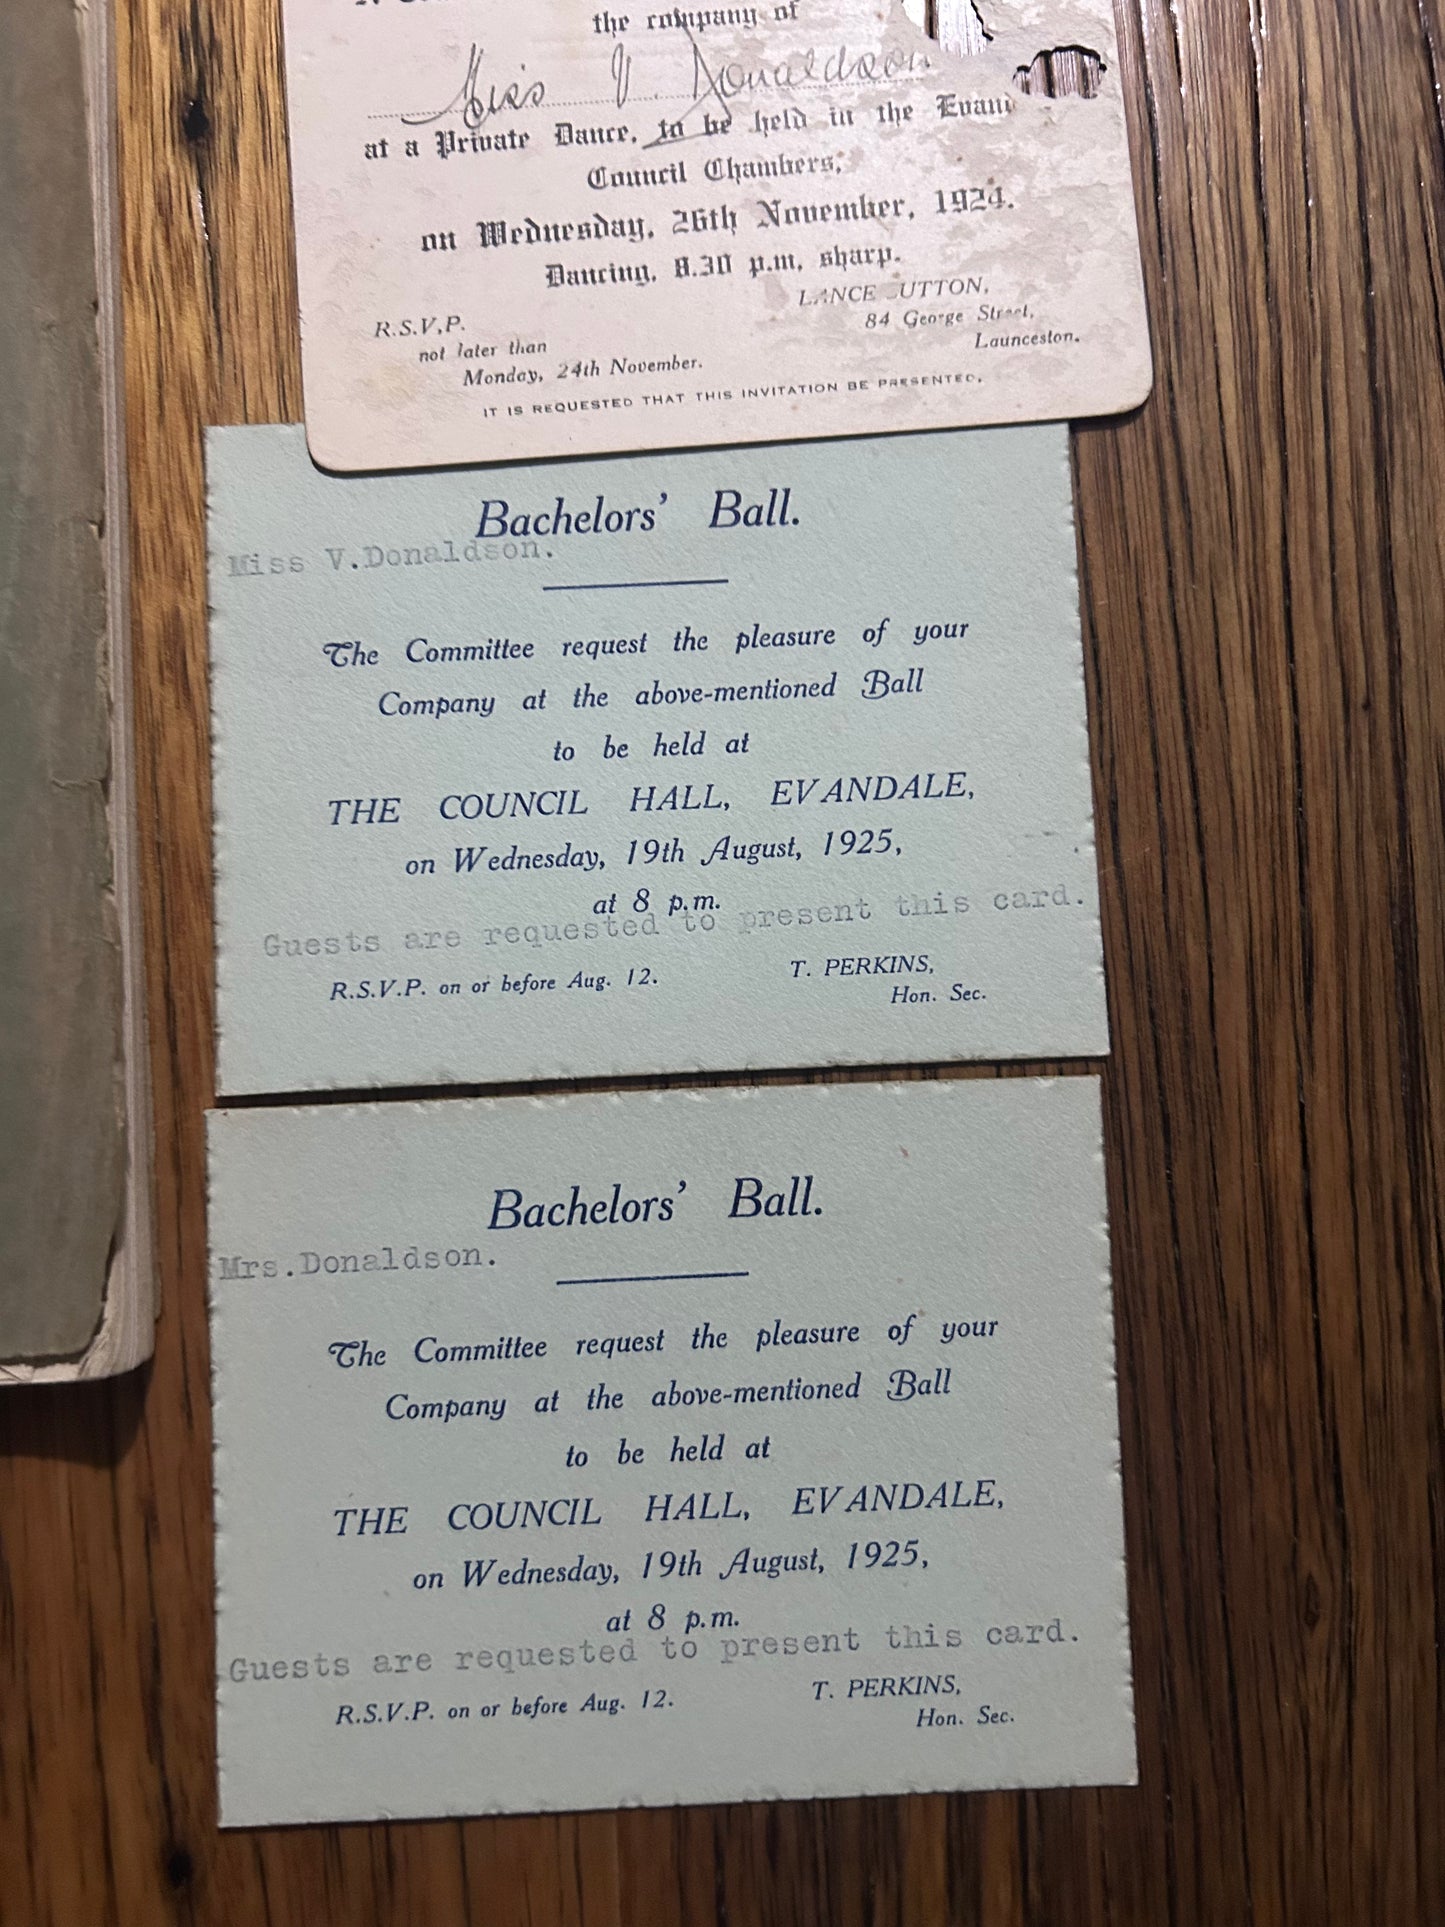 the company of
Miss V. Donaldson
at a Private Dance, to be held in the
Council Chambers,
on Wednesday, 26th November, 1924.
Dancing, 8.30 p.m, sharp.
LANCE
84 George Street,
Launceston.
R.S.V.P.
not later than
Monday, 24th November.
IT IS REQUESTED THAT THIS INVITATION BE PRESENTED.
Bachelors' Ball.
Miss V.Donaldson.
The Committee request the pleasure of your
Company at the above-mentioned Ball
to be held at
THE COUNCIL HALL, EVANDALE,
on Wednesday, 19th August, 1925,
at 8 p.m.
Guests are requested to present this card.
R.S.V.P. on or before Aug. 12.
T. PERKINS,
Hon. Sec.
Bachelors' Ball.
Mrs.Donaldson.
The Committee request the pleasure of your
Company at the above-mentioned Ball
to be held at
THE COUNCIL HALL, EVANDALE,
on Wednesday, 19th August, 1925,
at 8 p.m.
Guests are requested to present this card.
R.S.V.P. on or before Aug. 12.
T. PERKINS,
Hon. Sec.